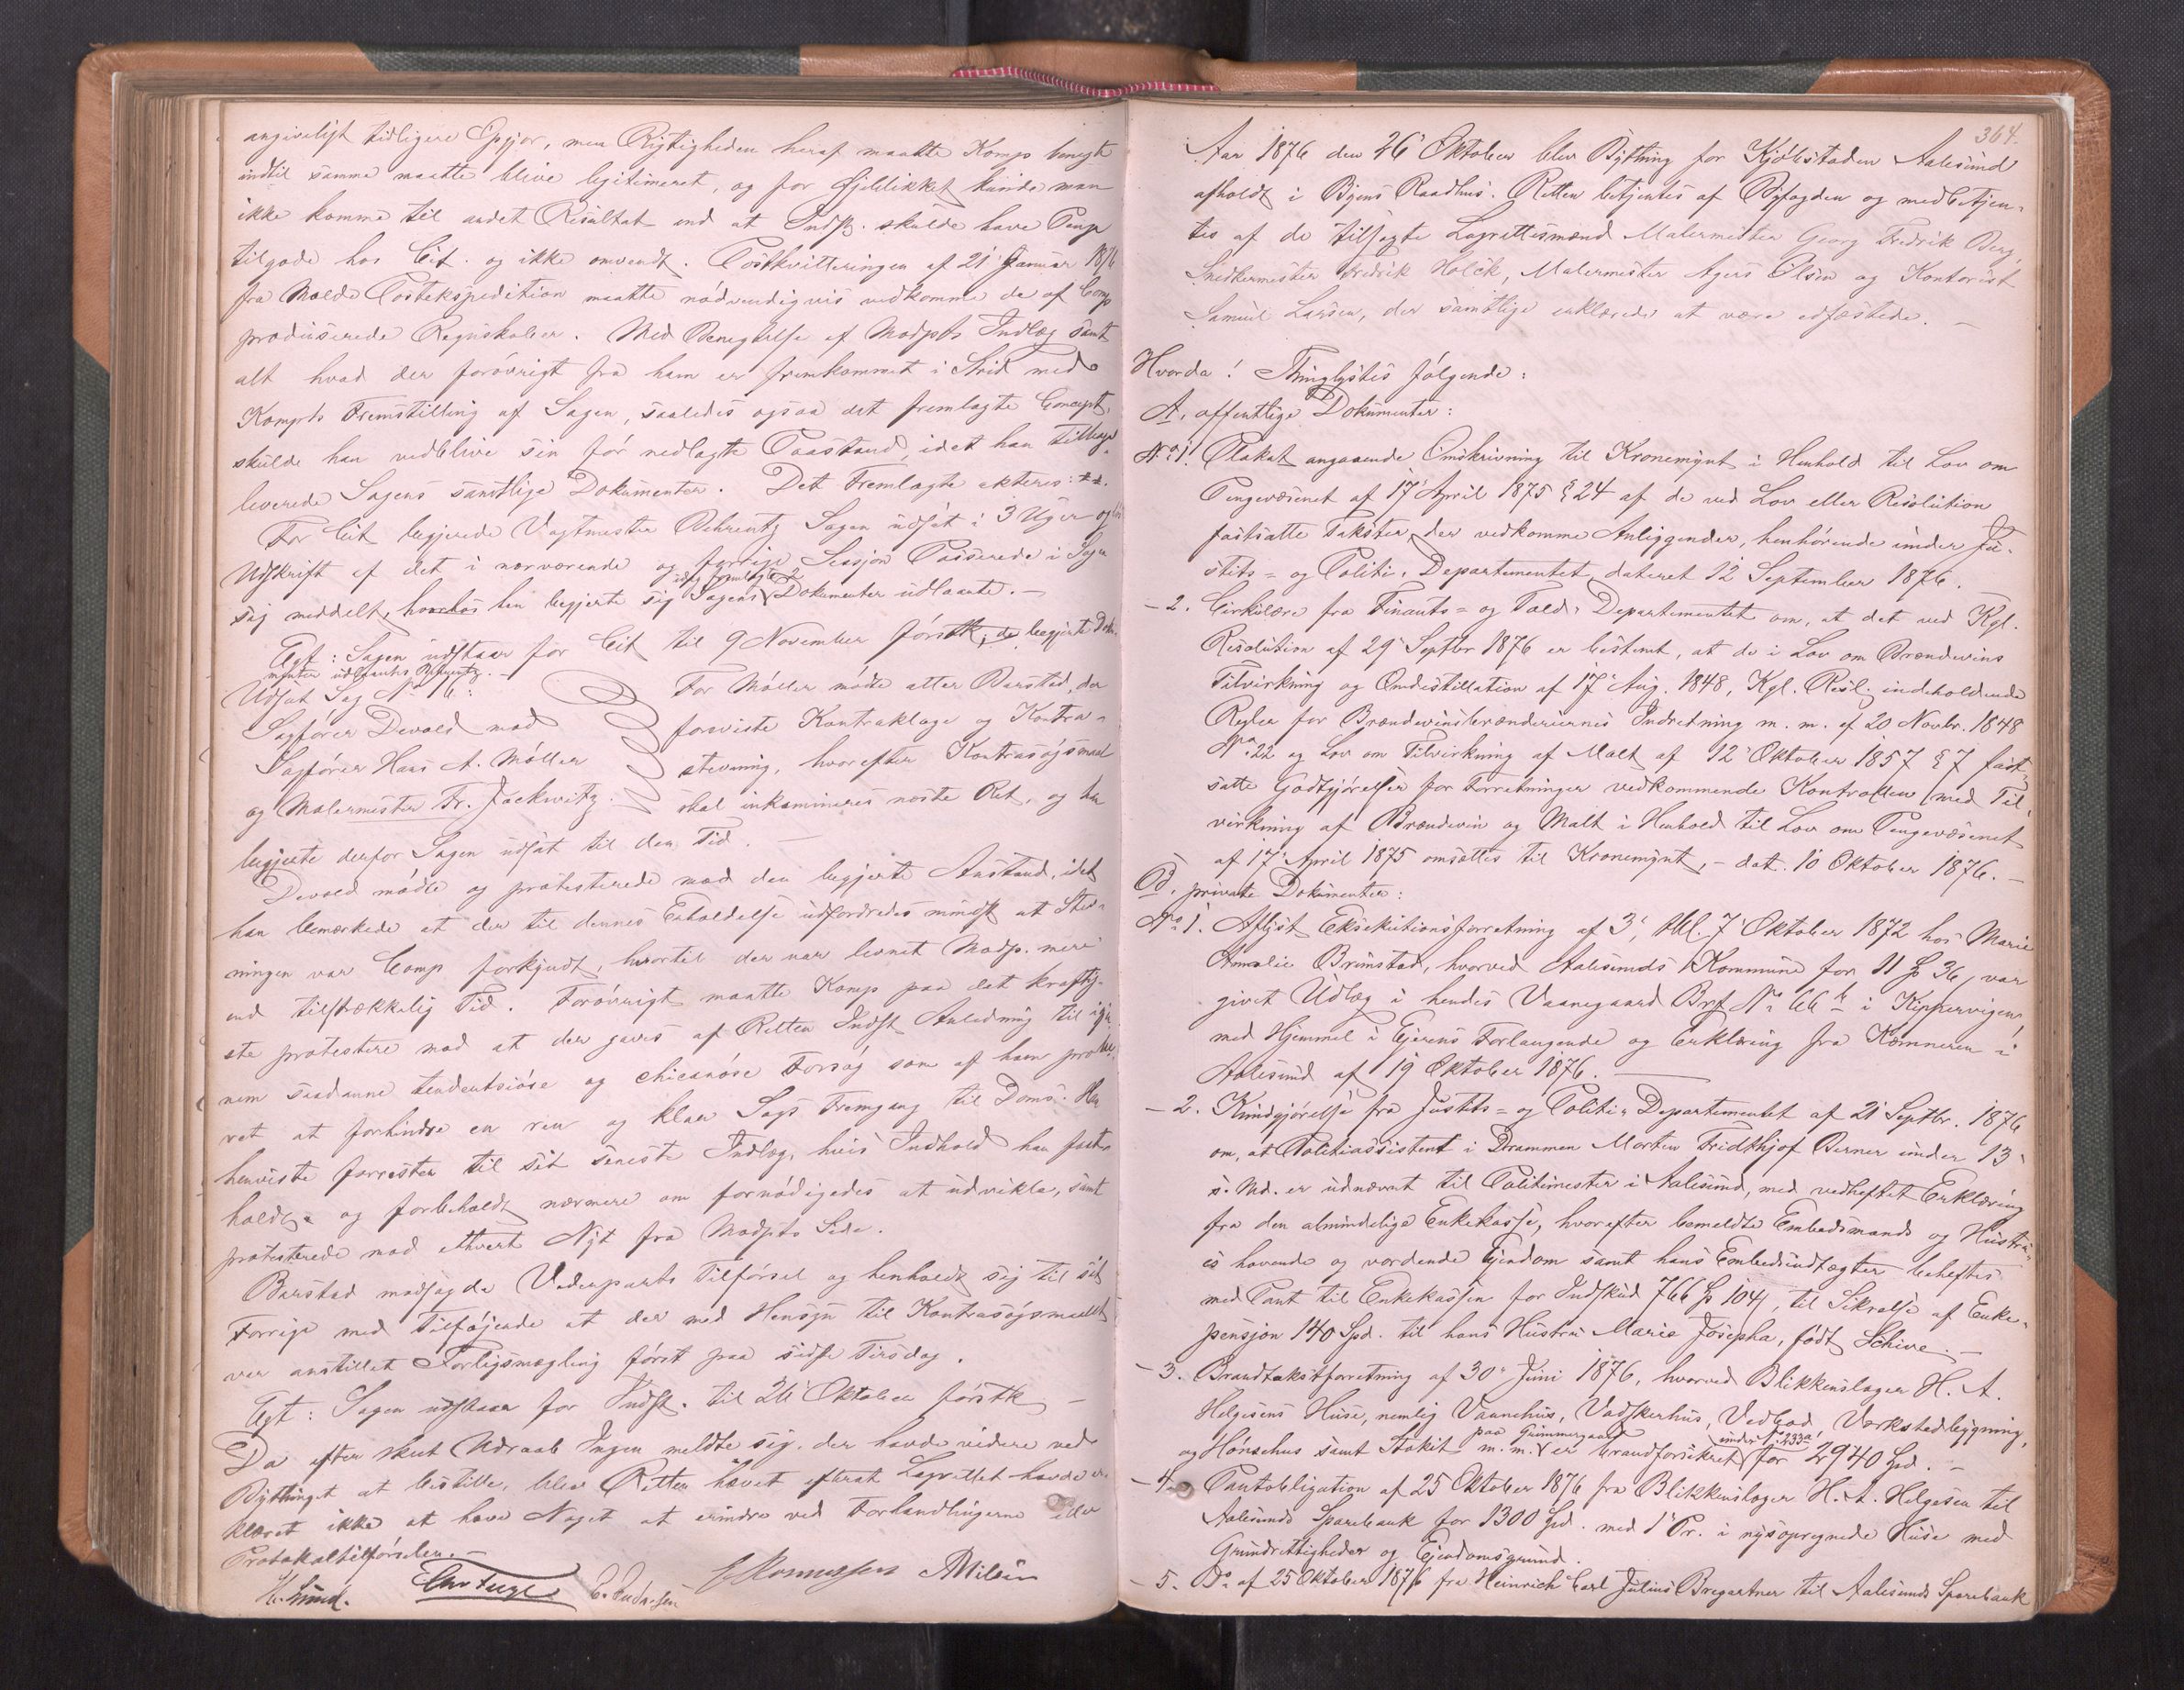 angiveligt tidligere Opgjør, men Rigtigheden heraf maatte Komp benegte
indtil samme maatte blive legitimeret, og for Øjeblikket kunde man
ikke komme til andet Resultat end at Indst. skulde have Penge
tilgode hos Cit. og ikke omvendt. Postkvitteringen af 21' Januar 1876
fra Molde Postekspedition maatte nødvendigvis vedkomme de af Comp
produserede Regnskaber. Med Benegtelse af Modpts Indlæg samt
alt hvad der forøvrigt fra ham er fremkommet i Strid med
Kompts Fremstilling af Sagen, saaledes ogsaa det fremlagte Concept,
skulde han vedblive sin før nedlagte Paastand, idet han tilbage
leverede Sagens samtlige Dokumenter. Det Fremlagte akteres:
For Cit begjerede Vagtmester Behrentz Sagen udsat i 3 Uger og
Udskrift af det i nærværende og forrige Session Passerede i Sagen
sig meddelt, hvorhos han begjerte sig Sagens idag fremlagte 2 Dokumenter udlaante. —
Agt: Sagen udstaar for Cit til 9 November førstk; de begjerte Doku
menter udlaantes Behrentz. —
Udsat Sag No 6:
Sagfører Devold mod
Sagfører Hans A. Møller
og Malermester Fr. Jackwitz.
For Møller mødte atter Barstad, der
foreviste Kontraklage og Kontra-
stevning, hvorefter Kontrasøgsmaal
skal inkamineres næste Ret, og han
begjerte derfor Sagen udsat til den Tid. —
Devold mødte og protesterede mod den begjerte Anstand, idet
han bemærkede at der til dennes Erholdelse udfordredes mindst at Stev-
ningen var Comp forkyndt, hvortil der var levnet Modp. mere
end tilstrækkelig Tid. Forøvrigt maatte Komp paa det kraftig-
ste protestere mod at der gaves af Retten Indst Anledning til igjen
nem saadanne tendentsiøse og chicanøse Forsøg som af ham prøve
ret at forhindre en ren og klar Sags Fremgang til Doms. Han
henviste forresten til sit seneste Indlæg, hvis Indhold han fast-
holdt og forbeholdt nærmere om fornødigedes at udvikle, samt
protesterede mod ethvert Nyt fra Modpts Side.
Barstad modsagde Vederparts Tilførsel og henholdt sig til sit
Forrige med Tilføjende at der med Hensyn til Kontrasøgsmaalet
var anstillet Forligsmægling først paa sidste Tirsdag.
Agt: Sagen udstaar for Indst. til 26' Oktober førstk. —
Da efter skeet Udraab Ingen meldte sig, der havde videre ved
Bythinget at bestille, blev Retten hævet efterat Lagrettet havde er-
klæret ikke at have Noget at erindre ved Forhandlingerne eller
Protokoltilførselen. —
H. Sund. Chr Fugl E. Andresen Rasmussen A Nilsen
364.
Aar 1876 den 26' Oktober blev Bything for Kjøbstaden Aalesund
afholdt i Byens Raadhus. Retten betjentes af Byfogden og medbetjen-
tes af de tilsagte Lagrettesmænd Malermester Georg Fredrik Berg,
Snedkermester Fredrik Holck, Malermester Agers Olsen og Kontorist
Samuel Larsen, der samtlige erklærede at være edfæstede. —
Hvorda! Thinglystes følgende:
A. offentlige Dokumenter:
No 1. Plakat angaaende Omskrivning til Kronemynt i Henhold til Lov om
Pengevæsenet af 17' April 1875 § 24 af de ved Lov eller Resolution
fastsatte Takster, der vedkomme Anliggender, henhørende under Ju-
stits- og Politi-Departementet, dateret 12 September 1876.
— 2. Cirkulære fra Finants- og Told-Departementet om, at det ved Kgl.
Resolution af 29' Septbr 1876 er bestemt, at de i Lov om Brændevins
Tilvirkning og Omdestillation af 17' Aug. 1848, Kgl. Resl. indeholdende
Regler for Brændevinsbrænderiernes Indretning m. m. af 20 Novbr. 1848
No 22 og Lov om Tilvirkning af Malt af 12' Oktober 1857 § 7 fast-
satte Godtgjørelser for Forretninger vedkommende Kontrollen med Til-
virkning af Brændevin og Malt i Henhold til Lov om Pengevæsenet
af 17' April 1875 omsættes til Kronemynt, — dat. 10 Oktober 1876. —
B. private Dokumenter:
No 1. Aflyst Eksekutionsforretning af 3', tbl. 7' Oktober 1872 hos Marie
Amalie Brunstad, hvorved Aalesunds Kommune for 11 Sp 36 var
givet Udlæg i hendes Vaanegaard Brf No 66 b i Kippervigen
med Hjemmel i Ejerens Forlangende og Erklæring fra Kæmneren i
Aalesund af 19 Oktober 1876. —
— 2. Kundgjørelse fra Justits- og Politi-Departementet af 21' Septbr. 1876
om, at Politiassistent i Drammen Morten Fridthjof Berner under 13'
s. Md. er udnævnt til Politimester i Aalesund, med vedheftet Erklæring
fra den almindelige Enkekasse, hvorefter bemeldte Embedsmands og Hustru-
es havende og vordende Ejendom samt hans Embedsindtægter beheftes
med Pant til Enkekassen for Indskud 766 Sp 104, til Sikrelse af Enke-
pension 140 Spd. til hans Hustru Marie Josepha, født Schive. —
— 3. Brandtakstforretning af 30' Juni 1876, hvorved Blikkenslager H. A.
Helgesens Huse, nemlig Vaanehus, Vadskerhus, Vedbod, Værkstedbygning,
og Hønsehus samt Stakit m. m. paa Grimmergaard er brandforsikret under No 233a for 2940 Spd. —
— 4. Pantobligation af 25 Oktober 1876 fra Blikkenslager H. A. Helgesen til
Aalesunds Sparebank for 1300 Spd. med 1' Pr. i nysopregnede Huse med
Grundrettigheder og Ejendomsgrund.
— 5. Do af 25 Oktober 1876 fra Heinrich Carl Julius Bregartner til Aalesunds Sparebank